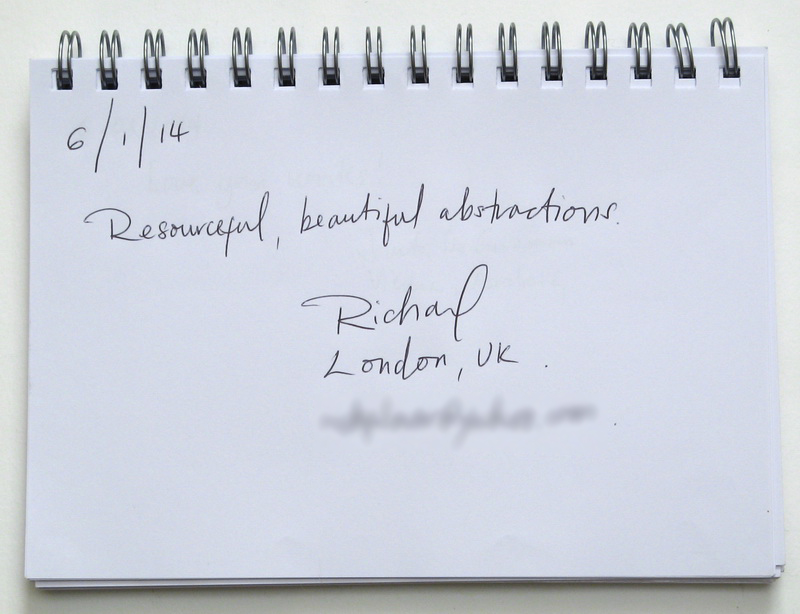 6/1/14
Resourceful, beautiful abstractions.
Richard
London, UK.